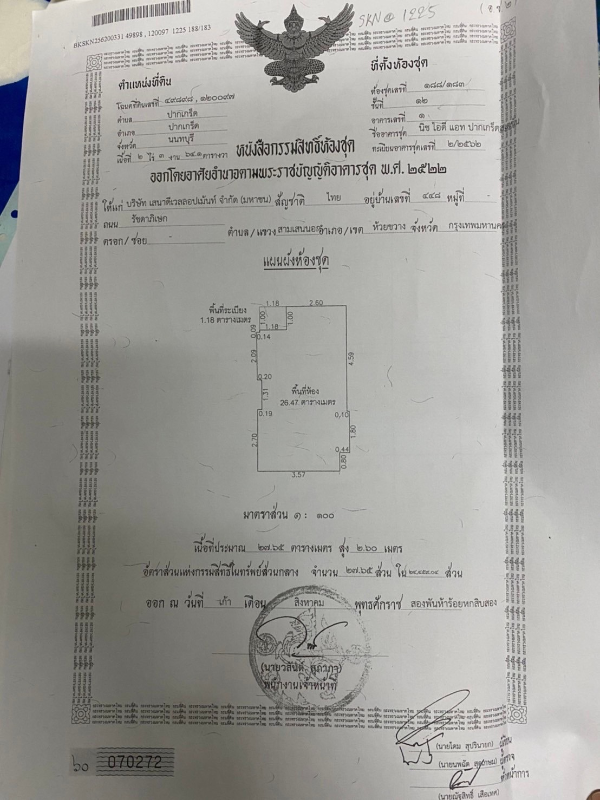 SKN@1225
BKSKN256200331 49898 , 120097 1225 188/183
ตำแหน่งที่ดิน
ที่ตั้งห้องชุด
โฉนดที่ดินเลขที่ ๔๙๘๙๘ , ๑๒๐๐๙๗
ห้องชุดเลขที่ ๑๘๘/๑๘๓
ตำบล ปากเกร็ด
ชั้นที่ ๑๒
อำเภอ ปากเกร็ด
อาคารเลขที่ ๑
จังหวัด นนทบุรี
ชื่ออาคารชุด นิช โอดี แอท ปากเกร็ด
เนื้อที่ ๒ ไร่ ๓ งาน ๖๔.๑ ตารางวา
ทะเบียนอาคารชุดเลขที่ ๒/๒๕๖๒
หนังสือกรรมสิทธิ์ห้องชุด
ออกโดยอาศัยอำนาจตามพระราชบัญญัติอาคารชุด พ.ศ. ๒๕๒๒
ให้แก่ บริษัท เสนาดีเวลลอปเม้นท์ จำกัด (มหาชน) สัญชาติ ไทย อยู่บ้านเลขที่ ๔๔๘ หมู่ที่
ถนน รัชดาภิเษก
ตรอก/ซอย ตำบล/แขวง สามเสนนอก อำเภอ/เขต ห้วยขวาง จังหวัด กรุงเทพมหานคร
แผนผังห้องชุด
1.18 2.60
พื้นที่ระเบียง
1.18 ตารางเมตร
1.00 1.00
1.18
0.09 0.14
2.09 4.59
0.20
พื้นที่ห้อง
26.47 ตารางเมตร
1.31
0.19 0.10
1.80
2.70
0.44
0.80
3.57
มาตราส่วน ๑ : ๑๐๐
เนื้อที่ประมาณ ๒๗.๖๕ ตารางเมตร สูง ๒.๖๐ เมตร
อัตราส่วนแห่งกรรมสิทธิ์ในทรัพย์ส่วนกลาง จำนวน ๒๗.๖๕ ส่วน ใน ส่วน
ออก ณ วันที่ เก้า เดือน สิงหาคม พุทธศักราช สองพันห้าร้อยหกสิบสอง
พนักงานเจ้าหน้าที่
๖๐ 070272